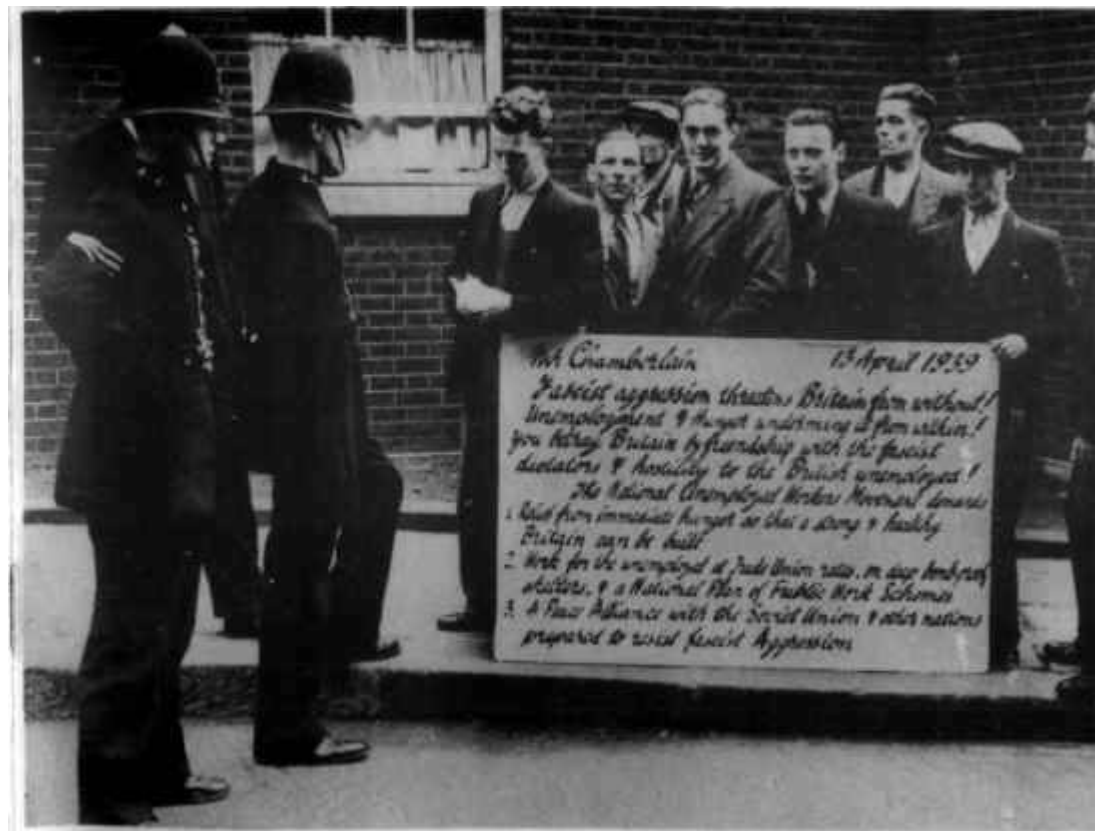 Mr Chamberlain 13 April 1939
Fascist aggression threatens Britain from without!
Unemployment & Hunger undermining it from within!
You betray Britain by friendship with the fascist
dictators & hostility to the British unemployed!
The National Unemployed Workers Movement demands
1. Relief from immediate hunger so that a strong & healthy
Britain can be built
2. Work for the unemployed at Trade Union rates, on deep bomb-proof
shelters, & a National Plan of Public Work Schemes
3. A Peace Alliance with the Soviet Union & other nations
prepared to resist fascist Aggression